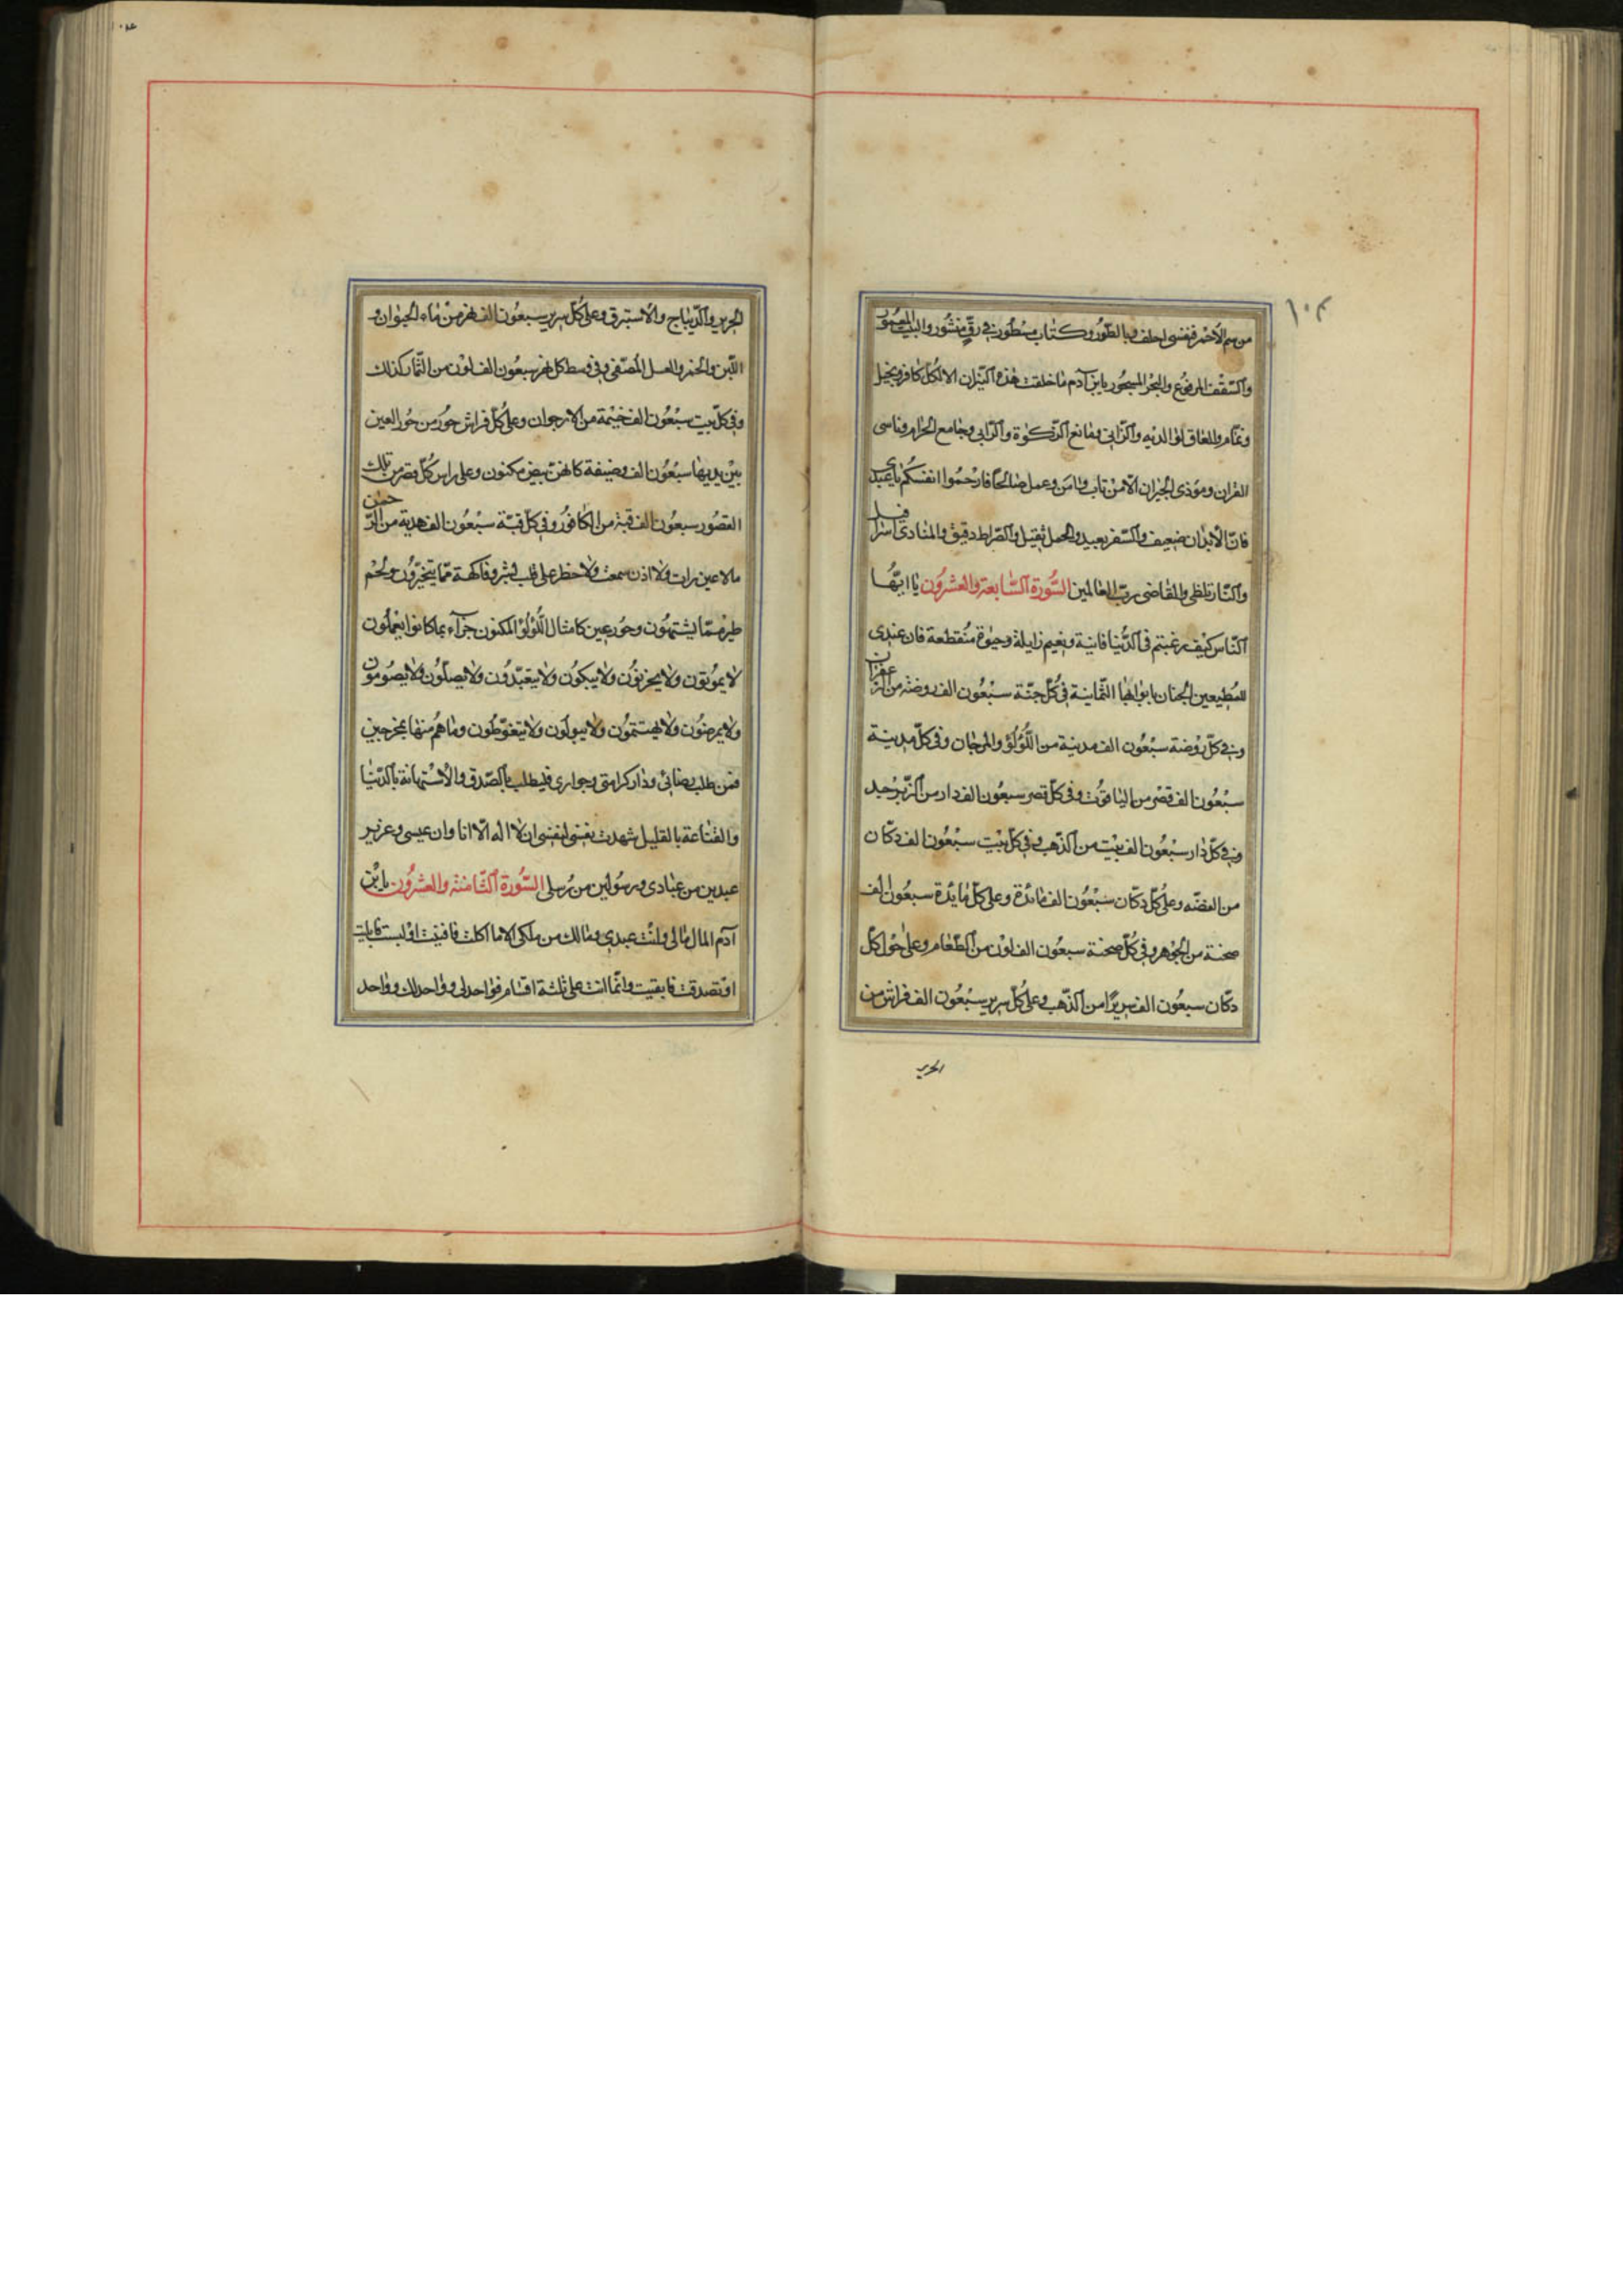 ١٠٣
من سم الاحمر فبنفسى احلف وبالطّوُر وكتاب مسْطُور فى رقٍّ منْشُور والبيت المعمُور
والسّقف المرفُوع والبحْر المسجُور يابن آدم ما خلقت هٰذه النّيران الا لكُلّ كافر وبخيل
ونمّام والعاق لوالديْه والزّانى ومانع الزّكوٰة والرّابى وجامع الحرام وناسى
القران ومؤذى الجيران الّا منْ تاب وٰامن وعمل صالحًا فارْحمُوا انفسكُم يا عبيدى
فانّ الأبدان ضعيف والسّفر بعيد والحمل ثقيل والصّراط دقيق والمنادى اسرافيل
والنّار تلظى والقاضى ربّ العالمين السُّورة السّابعة والعشرُون يا ايّهُا
النّاس كيْف رغبتم فى الدُّنيا فانية ونعيم زايلة وحيٰوة منْقطعة فان عندى
للمُطيعين الجنان بابوابها الثّمانية فى كُلّ جنّة سبْعُون الف روضة من الزّعفران
وفى كلّ روْضة سبْعُون الف مدينة من اللّؤلُؤ والمرجان وفى كلّ مدينة
سبْعُون الف قصْر من الياقوُت وفى كلّ قصر سبعُون الف دار من الزّبرْجد
وفى كلّ دار سبْعُون الف بيْت من الذّهب وفى كلّ بيْت سبْعُون الف دكّان
من الفضّه وعلى كُلّ دكّان سَبْعُون الف مائدة وعلى كلّ مايدة سبعُون الف
صحنة من الجْوهر وفى كُلّ صحنة سبعُون الف لوْن من الطّعام وعلى حوْل كلّ
دكّان سبعُون الف سريرًا من الذّهب وعلى كُلّ سرير سبْعُون الف فراش من
الحرير
الحرير والدّيباج والأستبرق وعلى كُلّ سرير سبعُون الف نهر من ماء الحيٰوان و
اللّبن والخمر والعسل المُصفّى وفى وسط كل نهر سبعُون الف لوْن من الثّمار كذلك
وفى كلّ بيت سبْعُون الف خيْمة من الارجوان وعلى كُلّ فراش حوُر من حُور العين
بيْن يديها سبْعُون الف وصيفة كانهنّ بيض مكنون وعلى راس كُلّ قصر من تلك
القصُور سبعُون الف قبّة من الكافوُر وفى كلّ قبّة سبْعُون الف هدية من الرّحمن
مالا عين رات ولا اذن سمعت ولا خطر على قلب بشر وفاكهة ممّا يتخيّروُن ولحْم
طير ممّا يشتهوُن وحوُر عين كامثال اللُّؤلُؤ المكنون جزآء بما كانوا يعْملُون
لا يموُتون ولا يحزنوُن ولا يبكوُن ولا يتعبّدوُن ولا يصلّوُن ولا يصُوموُن
ولا يمرضوُن ولا يهتمّوُن ولا يبولُون ولا يتغوّطُون وما هُم منها بمخرجين
فمن طلب رضائى ودار كرامتى وجوارى فليطلب بالصّدق والأستهانة بالدّنيا
والقناعة بالقليل شهدت نفسى لنفسى ان لا اله الّا انا وان عيسى وعزير
عبدين من عبادى ورسوُلين من رُسلى السُّورة الثّامنة والعشروُن يا ابْن
آدم المال مالى وانْت عبدى ومالك من ملكى الا ما اكلت فافنيْت اوْ لبست فابليت
اوْ تصدقت فابقيت وانّما انت على ثلثة اقسام فواحد لى وواحد لك وواحد